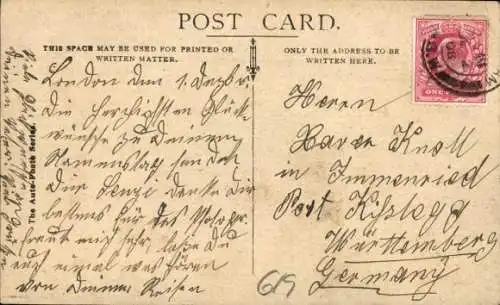 POST CARD.
THIS SPACE MAY BE USED FOR PRINTED OR
WRITTEN MATTER.
ONLY THE ADDRESS TO BE
WRITTEN HERE.
The Auto-Photo Series
London den 1. Dezbr
Die herzlichsten Glück-
wünsche zu Deinem
Namenstag sendet
Dir Senzi danke Dir
bestens für das
freut mich sehr, laße Du
auch einmal was hören
von Deinem Reisen
Herrn
Xaver Knoll
in Immenried
Post Kißlegg
Württemberg
Germany
615